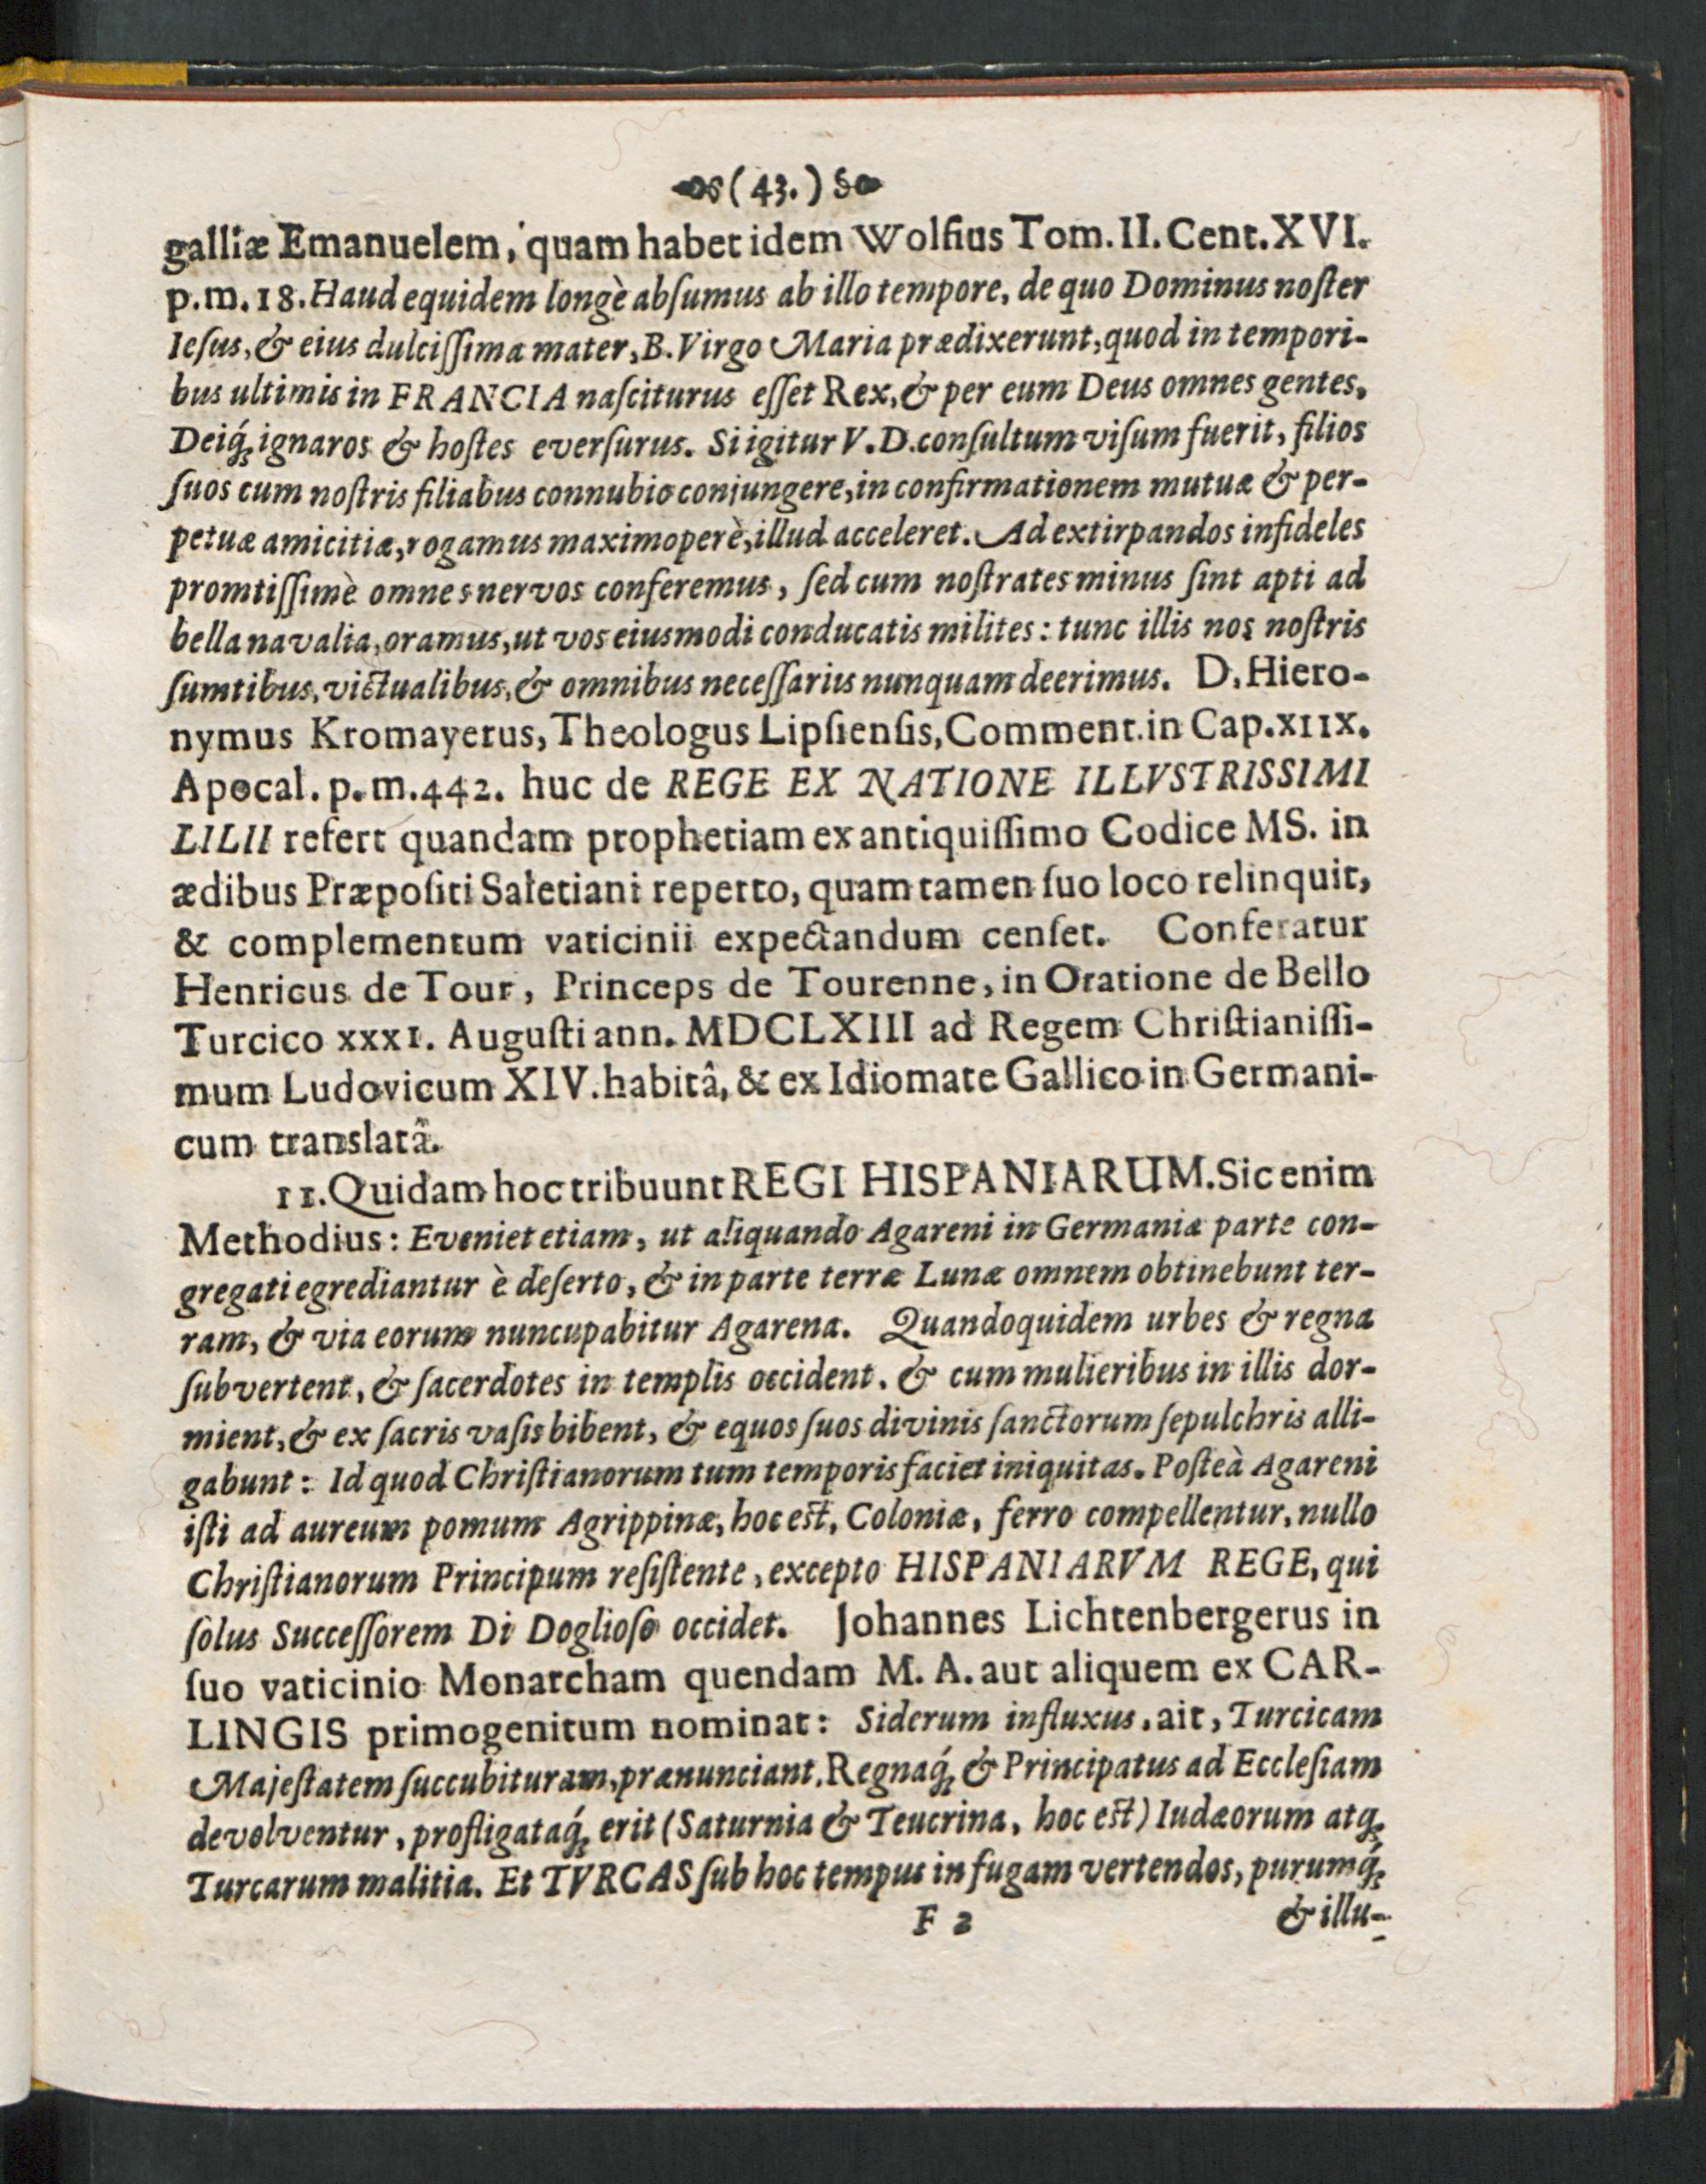 (43.)
galliæ Emanuelem, quam habet idem Wolfius Tom. II. Cent. XVI.
p. m. 18. Haud equidem longè abſumus ab illo tempore, de quo Dominus noſter
Ieſus, & eius dulciſſima mater, B. Virgo Maria prædixerunt, quod in tempori-
bus ultimis in FRANCIA naſciturus eſſet Rex, & per eum Deus omnes gentes,
Deiq́; ignaros & hoſtes everſurus. Si igitur V. D. conſultum viſum fuerit, filios
ſuos cum noſtris filiabus connubio conjungere, in confirmationem mutuæ & per-
petuæ amicitiæ, rogamus maximoperè, illud acceleret. Ad extirpandos infideles
promtiſſimè omnes nervos conferemus, ſed cum noſtrates minus ſint apti ad
bella navalia, oramus, ut vos eiusmodi conducatis milites: tunc illis nos noſtris
ſumtibus, victualibus, & omnibus neceſſariis nunquam deerimus. D. Hiero-
nymus Kromayerus, Theologus Lipſienſis, Comment. in Cap. XIIX.
Apocal. p. m. 442. huc de REGE EX NATIONE ILLVSTRISSIMI
LILII refert quandam prophetiam ex antiquiſſimo Codice MS. in
ædibus Præpoſiti Saletiani reperto, quam tamen ſuo loco relinquit,
& complementum vaticinii expectandum cenſet. Conferatur
Henricus de Tour, Princeps de Tourenne, in Oratione de Bello
Turcico XXXI. Auguſti ann. MDCLXIII ad Regem Chriſtianiſſi-
mum Ludovicum XIV. habitâ, & ex Idiomate Gallico in Germani-
cum translatâ.
11. Quidam hoc tribuunt REGI HISPANIARUM. Sic enim
Methodius: Eveniet etiam, ut aliquando Agareni in Germaniæ parte con-
gregati egrediantur è deſerto, & in parte terræ Lunæ omnem obtinebunt ter-
ram, & via eorum nuncupabitur Agarena. Quandoquidem urbes & regna
ſubvertent, & ſacerdotes in templis occident, & cum mulieribus in illis dor-
mient, & ex ſacris vaſis bibent, & equos ſuos divinis ſanctorum ſepulchris alli-
gabunt: Id quod Chriſtianorum tum temporis faciet iniquitas. Poſteà Agareni
iſti ad aureum pomum Agrippinæ, hoc eſt, Coloniæ, ferro compellentur, nullo
Chriſtianorum Principum reſiſtente, excepto HISPANIARVM REGE, qui
ſolus Succeſſorem Di Doglioſo occidet. Johannes Lichtenbergerus in
ſuo vaticinio Monarcham quendam M. A. aut aliquem ex CAR-
LINGIS primogenitum nominat: Siderum influxus, ait, Turcicam
Majeſtatem ſuccubituram, prænunciant, Regnaq́; & Principatus ad Eccleſiam
devolventur, profligataq́; erit (Saturnia & Teucrina, hoc eſt) Iudæorum atq;
Turcarum malitia. Et TVRCAS ſub hoc tempus in fugam vertendos, purumq́;
F 2 & illu-